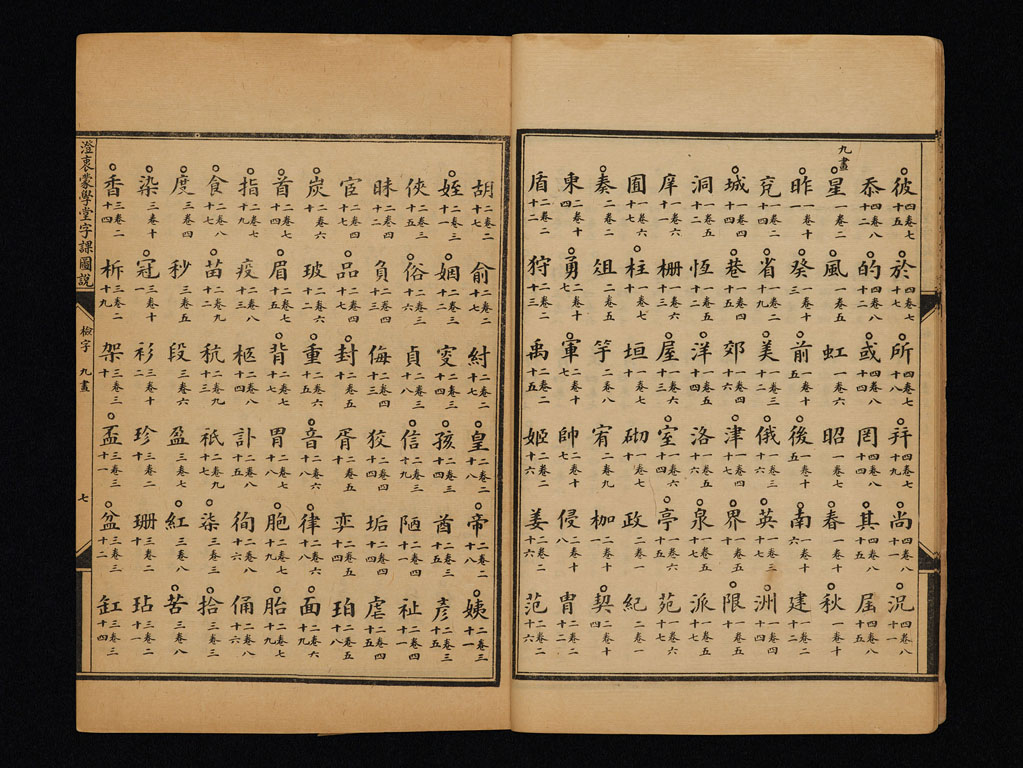 彼四卷七十五 於四卷七十七 所四卷七十八 幷四卷七十九 尚四卷八十一 況四卷八十一
忝四卷八十二 的四卷八十二 或四卷八十四 罔四卷八十四 其四卷八十五 屈四卷八十五
九畫
星一卷二二 風一卷二五 虹一卷二六 昭一卷二八 春一卷二十一 秋一卷二十一
昨 癸 前 後 南 建
兗 省 美 俄 英 洲
城 巷 郊 津 界 限
洞 恆 洋 洛 泉 派
庠一卷六十一 柵一卷六十三 屋一卷六十四 室一卷六十四 亭一卷六十五 苑一卷六十七
囿 柱一卷七十 垣一卷七十 砌一卷七十 政二卷一 紀二卷一
奏 俎二卷五 竽二卷六 宥二卷九 枷二卷十一 契二卷十四
柬二卷十四 勇二卷十七 軍二卷十七 帥二卷十七 侵二卷十八 冑
盾二卷二十二 狩二卷二十三 禹二卷二十五 姬二卷二十六 姜二卷二十六 范二卷二十六
胡二卷二十七 俞二卷二十七 紂二卷二十七 皇二卷二十八 帝二卷二十八 姨二卷三十一
姪二卷三十一 姻二卷三十二 叟二卷三十四 孩二卷三十四 酋二卷三十五 彥二卷三十五
俠二卷三十五 俗二卷三十六 貞二卷三十八 信二卷三十九 陋二卷四十一 祉二卷四十一
昧二卷四十二 負二卷四十三 侮二卷四十三 狡二卷四十四 垢二卷四十四 虐二卷四十五
宦二卷四十七 品二卷四十七 封二卷五十一 胥二卷五十 弈二卷五十四 珀二卷五十五
炭二卷六十一 玻二卷六十二 重二卷六十五 音二卷六十八 律二卷六十八 面二卷六十九
首二卷七十五 眉二卷七十五 背二卷七十七 胃二卷七十八 胞二卷七十九 胎二卷七十九
指二卷七十九 疫二卷八十三 柩二卷八十四 訃二卷八十五 徇二卷八十六 俑二卷八十六
食二卷八十七 苗二卷九十二 秔二卷九十三 祇二卷九十七 柒三卷三 拾三卷三
度三卷四 秒三卷五 段三卷六 盈三卷七 紅三卷八 苦三卷八
染三卷十 冠三卷十一 衫三卷十二 珍三卷二十 珊三卷二十 玷三卷二十一
香三卷二十四 柝三卷二十九 架三卷三十 盃三卷三十一 盆三卷三十二 缸三卷三十四
澄衷蒙學堂字課圖說 檢字 九畫 七